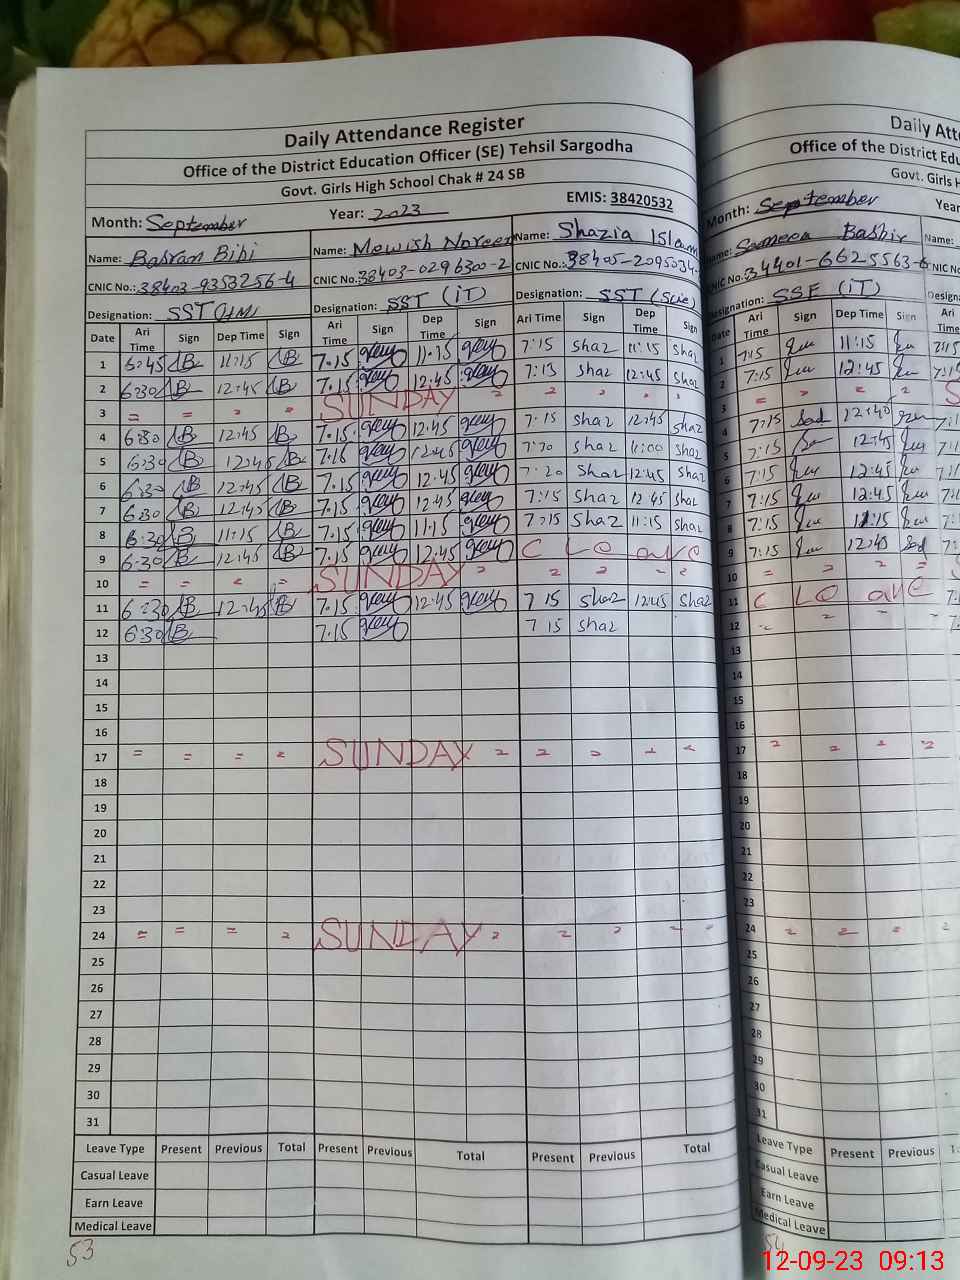 Daily Attendance Register
Office of the District Education Officer (SE) Tehsil Sargodha
Govt. Girls High School Chak # 24 SB
Month: September Year: 2023 EMIS: 38420532
Name: Basran Bibi Name: Mewish Noreen Name: Shazia Islam
CNIC No.: 38403-9353256-4 CNIC No.: 38403-0296300-2 CNIC No.: 38405-2095034-
Designation: SST Designation: SST (iT) Designation: SST (Scie)
Date Ari Time Sign Dep Time Sign Ari Time Sign Dep Time Sign Ari Time Sign Dep Time Sign
1 6:45 B 11:15 B 7.15 11.15 7:15 shaz 11:15 shaz
2 6:30 B 12:45 B 7.15 12:45 7:13 shaz 12:45 shaz
3 = = = = SUNDAY = = = = =
4 6:30 B 12:45 B 7.15 12:45 7:15 shaz 12:45 shaz
5 6:30 B 12:45 B 7.15 12:45 7:30 shaz 11:00 shaz
6 6:30 B 12:45 B 7.15 12.45 7:20 shaz 12:45 shaz
7 6:30 B 12:45 B 7.15 12:45 7:15 shaz 12 45 shaz
8 6:30 B 11:15 B 7.15 11:15 7:15 shaz 11:15 shaz
9 6:30 B 12:45 B 7.15 12.45 C L
10 = = = = SUNDAY = = = = =
11 6:30 B 12:45 B 7.15 12:45 7 15 shaz 12:45 shaz
12 6:30 B 7.15 7 15 shaz
13
14
15
16
17 = = = = SUNDAY = = = = =
18
19
20
21
22
23
24 = = = = SUNDAY = = = = =
25
26
27
28
29
30
31
Leave Type Present Previous Total Present Previous Total Present Previous Total
Casual Leave
Earn Leave
Medical Leave
53
Daily Att
Office of the District Edu
Govt. Girls H
Month: September Year
Name: Sameen Bashir Name:
CNIC No.: 34401-6625563-6 NIC No
Designation: SSE (iT) Design
Date Ari Time Sign Dep Time Sign Ari Time
1 7:15 11:15 7:15
2 7:15 12:45 7:1
3 = = = = S
4 7:15 12:40 7:1
5 7:15 12:45 7:1
6 7:15 12:45 7:1
7 7:15 12:45 7:1
8 7:15 11:15 7:1
9 7:15 12:45 7:
10 = = = =
11 C L 7:
12 = = = 7.
13
14
15
16
17 = = = =
18
19
20
21
22
23
24 = = = =
25
26
27
28
29
30
31
Leave Type Present Previous
Casual Leave
Earn Leave
Medical Leave
54
12-09-23 09:13